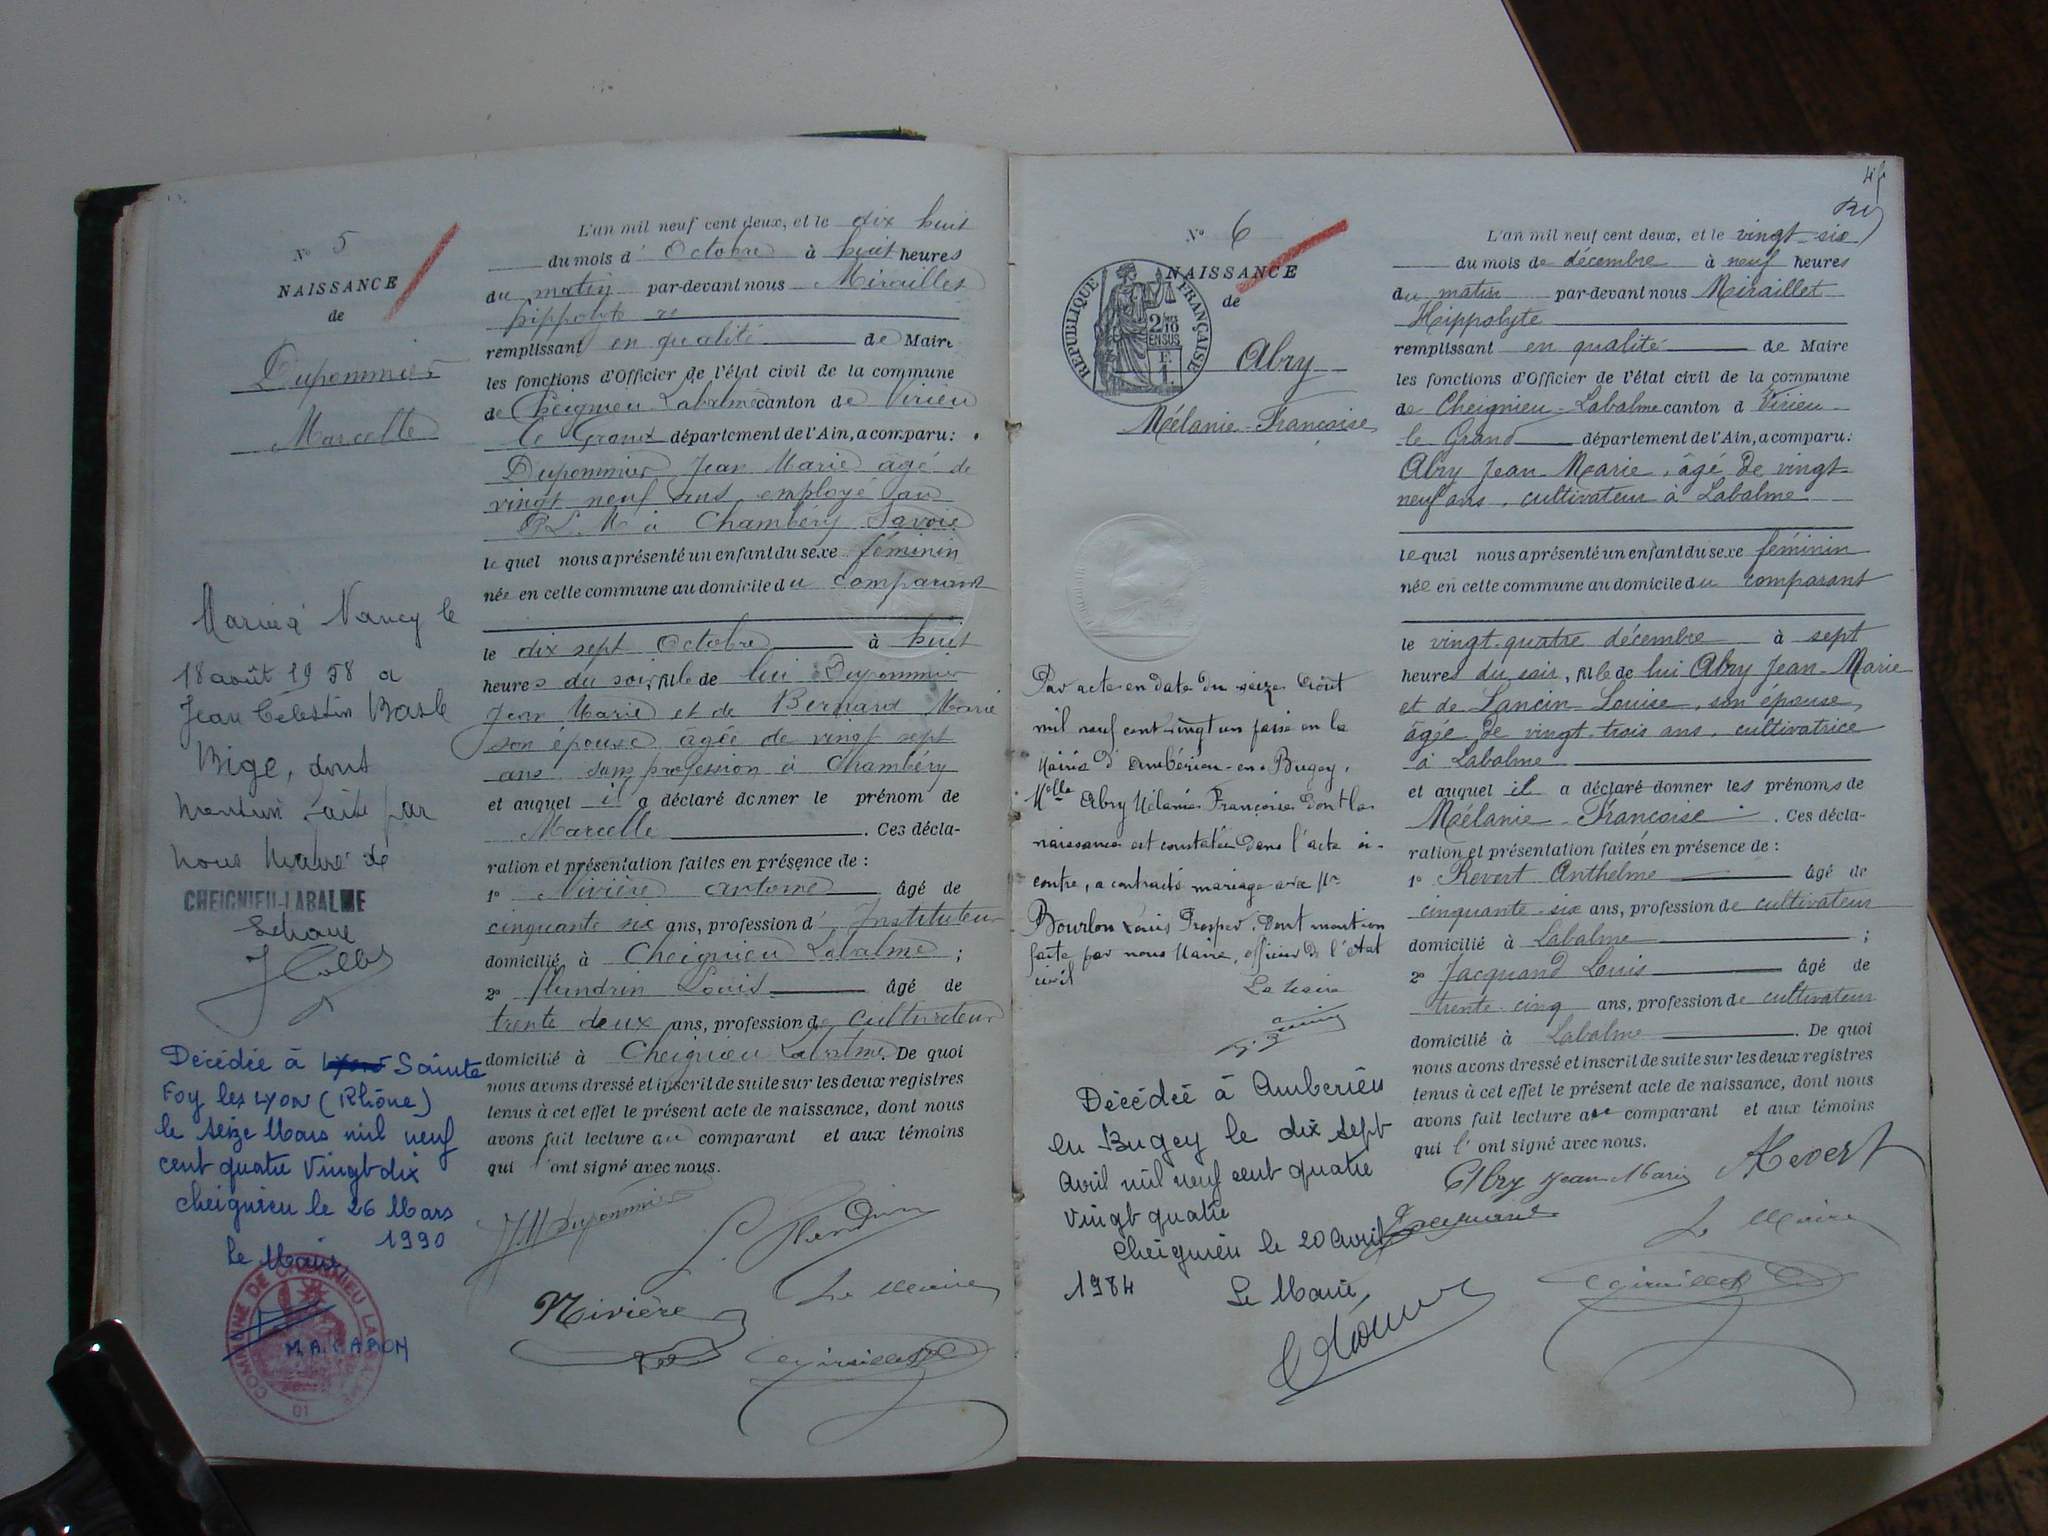 N° 5
NAISSANCE
de
Dupommier
Marcelle
Mariée à Nancy le
18 août 1958 a
Jean Celestin Basle
Bige, dont
mention faite par
nous Maire de
CHEIGNIEU-LABALME
Décédée à Lyon Sainte
Foy les Lyon (Rhône)
le seize Mars mil neuf
cent quatre Vingt dix
Cheignieu le 26 Mars
1990
Le Maire,
COMMUNE DE CHEIGNIEU LA BALME
MACABON
01
L'an mil neuf cent deux, et le dix huit
du mois d' Octobre à huit heures
du matin par-devant nous Miraillet
hippolyte
remplissant en qualité de Maire
les fonctions d'Officier de l'état civil de la commune
de Cheignieu Labalme canton de Virieu
le Grand département de l'Ain, a comparu :
Dupommier Jean Marie âgé de
vingt neuf ans employé au
P.L.M à Chambéry Savoie
le quel nous a présenté un enfant du sexe féminin
née en cette commune au domicile du comparant
le dix sept Octobre à huit
heures du soir, fille de lui Dupommier
Jean Marie et de Bernard Marie
son épouse âgée de vingt sept
ans sans profession à Chambéry
et auquel il a déclaré donner le prénom de
Marcelle. Ces décla-
ration et présentation faites en présence de :
1° Rivière Antoine âgé de
cinquante six ans, profession d' Instituteur
domicilié à Cheignieu Labalme ;
2° Flandrin Louis âgé de
trente deux ans, profession de cultivateur
domicilié à Cheignieu Labalme. De quoi
nous avons dressé et inscrit de suite sur les deux registres
tenus à cet effet le présent acte de naissance, dont nous
avons fait lecture au comparant et aux témoins
qui l'ont signé avec nous.
J.M Dupommier
L. Flandrin
Rivière
Le Maire
Miraillet
N° 6
NAISSANCE
de
REPUBLIQUE FRANÇAISE
2/10
EN SUS
F.
1.
Abry
Mélanie-Françoise
Par acte en date du seize Août
mil neuf cent vingt un passé en la
Mairie d'Ambérieu-en-Bugey,
Melle Abry Mélanie Françoise dont la
naissance est constatée dans l'acte ci-
contre, a contracté mariage avec Mr
Bourbon Louis Prosper. Dont mention
faite par nous Maire, officier de l'état
civil
Le Maire
Décédée à Amberieu
en Bugey le dix sept
Avril mil neuf cent quatre
vingt quatre
Cheignieu le 20 Avril
1984
Le Maire,
L'an mil neuf cent deux, et le vingt-six
du mois de décembre à neuf heures
du matin par-devant nous Miraillet
Hippolyte
remplissant en qualité de Maire
les fonctions d'Officier de l'état civil de la commune
de Cheignieu-Labalme canton d Virieu
le Grand département de l'Ain, a comparu :
Abry Jean-Marie, âgé de vingt-
neuf ans, cultivateur à Labalme
le quel nous a présenté un enfant du sexe féminin
née en cette commune au domicile du comparant
le vingt-quatre décembre à sept
heures du soir, fille de lui Abry Jean-Marie
et de Lancin Louise, son épouse,
âgée de vingt-trois ans, cultivatrice
à Labalme
et auquel il a déclaré donner les prénoms de
Mélanie-Françoise. Ces décla-
ration et présentation faites en présence de :
1° Revert Anthelme âgé de
cinquante-six ans, profession de cultivateur
domicilié à Labalme ;
2° Jacquand Louis âgé de
trente-cinq ans, profession de cultivateur
domicilié à Labalme. De quoi
nous avons dressé et inscrit de suite sur les deux registres
tenus à cet effet le présent acte de naissance, dont nous
avons fait lecture au comparant et aux témoins
qui l'ont signé avec nous.
Abry Jean Marie ARevert
Jacquand
Le Maire
Miraillet